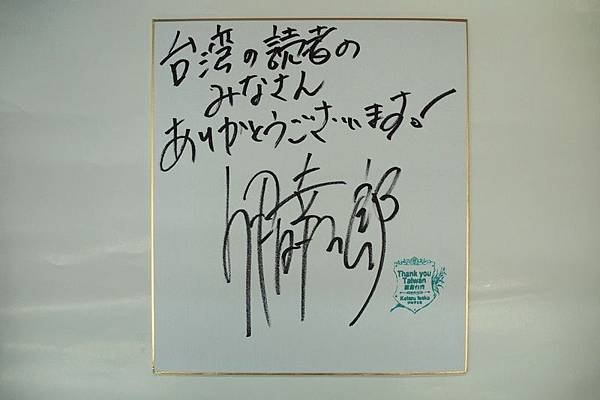 台湾の読者の
みなさん
ありがとうございます。!
伊坂幸太郎
Thank you
Taiwan
Kotaro Isaka